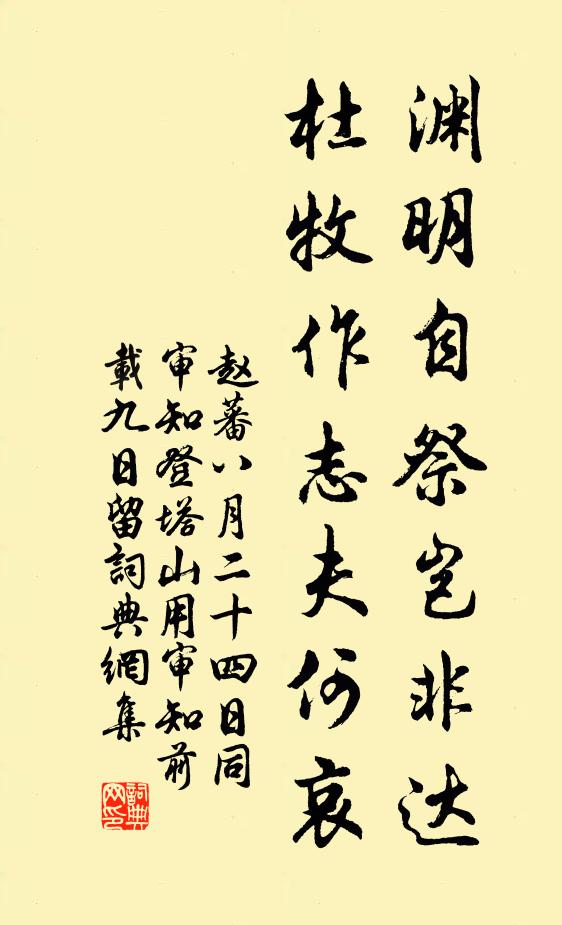 渊明自祭岂非达
杜牧作志夫何哀
赵蕃八月二十四日同
审知登塔山用审知前
載九日留詞典網集
詞典網印